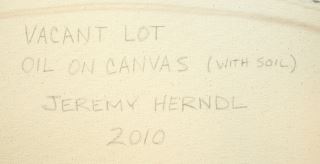 VACANT LOT
OIL ON CANVAS (WITH SOIL)
JEREMY HERNDL
2010